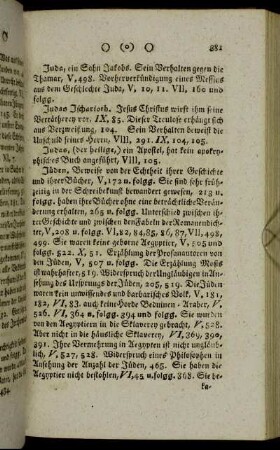 ( o ) 881
Juda, ein Sohn Jakobs. Sein Verhalten gegen die
Thamar, V, 498. Vorherverkündigung eines Messias
aus dem Geschlechte Juda, V, 10, 11. VII, 160 und
folgg.
Judas Ischarioth. Jesus Christus wirft ihm seine
Verrätherey vor. IX, 85. Dieser Treulose erhängt sich
aus Verzweiflung, 104. Sein Verhalten beweist die
Unschuld seines Herrn, VIII, 291. IX, 104, 105.
Judas, (der heilige,) ein Apostel, hat kein apokry-
phisches Buch angeführt, VIII, 105.
Jüden, Beweise von der Echtheit ihrer Geschichte
und ihrer Bücher, V, 172 u. folgg. Sie sind sehr früh-
zeitig in der Schreibekunst bewandert gewesen, 213 u.
folgg. haben ihre Bücher ohne eine beträchtliche Verände-
rung erhalten, 265 u. folgg. Unterschied zwischen ih-
rer Geschichte und zwischen den Fabeln der Romanendich-
ter, V, 208 u. folgg. VI, 82, 84, 85, 86, 87, VII, 498,
499. Sie waren keine geborne Aegyptier, V, 505 und
folgg. 522. X, 51. Erzählung der Profanautoren von
den Jüden, V, 507 u. folgg. Die Erzählung Mosis
ist wahrhafter, 519. Widerspruch der Ungläubigen in An-
sehung des Ursprungs der Jüden, 205, 519. Die Jüden
waren kein unwissendes und barbarisches Volk, V, 181,
182, VI, 83. auch keine Horde Beduinen-Araber, V,
526. VI, 364 u. folgg. 394 und folgg. Sie wurden
von den Aegyptiern in die Sklaverey gebracht, V, 528.
Aber nicht in die häusliche Sklaverey, VI, 369, 390,
391. Ihre Vermehrung in Aegypten ist nicht unglaub-
lich, V, 527, 528. Widerspruch eines Philosophen in
Ansehung der Anzahl der Jüden, 465. Sie haben die
Aegyptier nicht bestohlen, VI, 45 u. folgg. 368. Sie be-
ka-